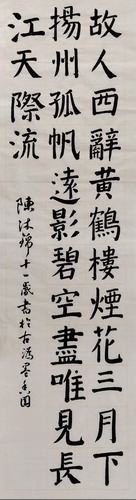 故人西辭黃鶴樓煙花三月下
揚州孤帆遠影碧空盡唯見長
江天際流
陳沐錦十一歲書於古